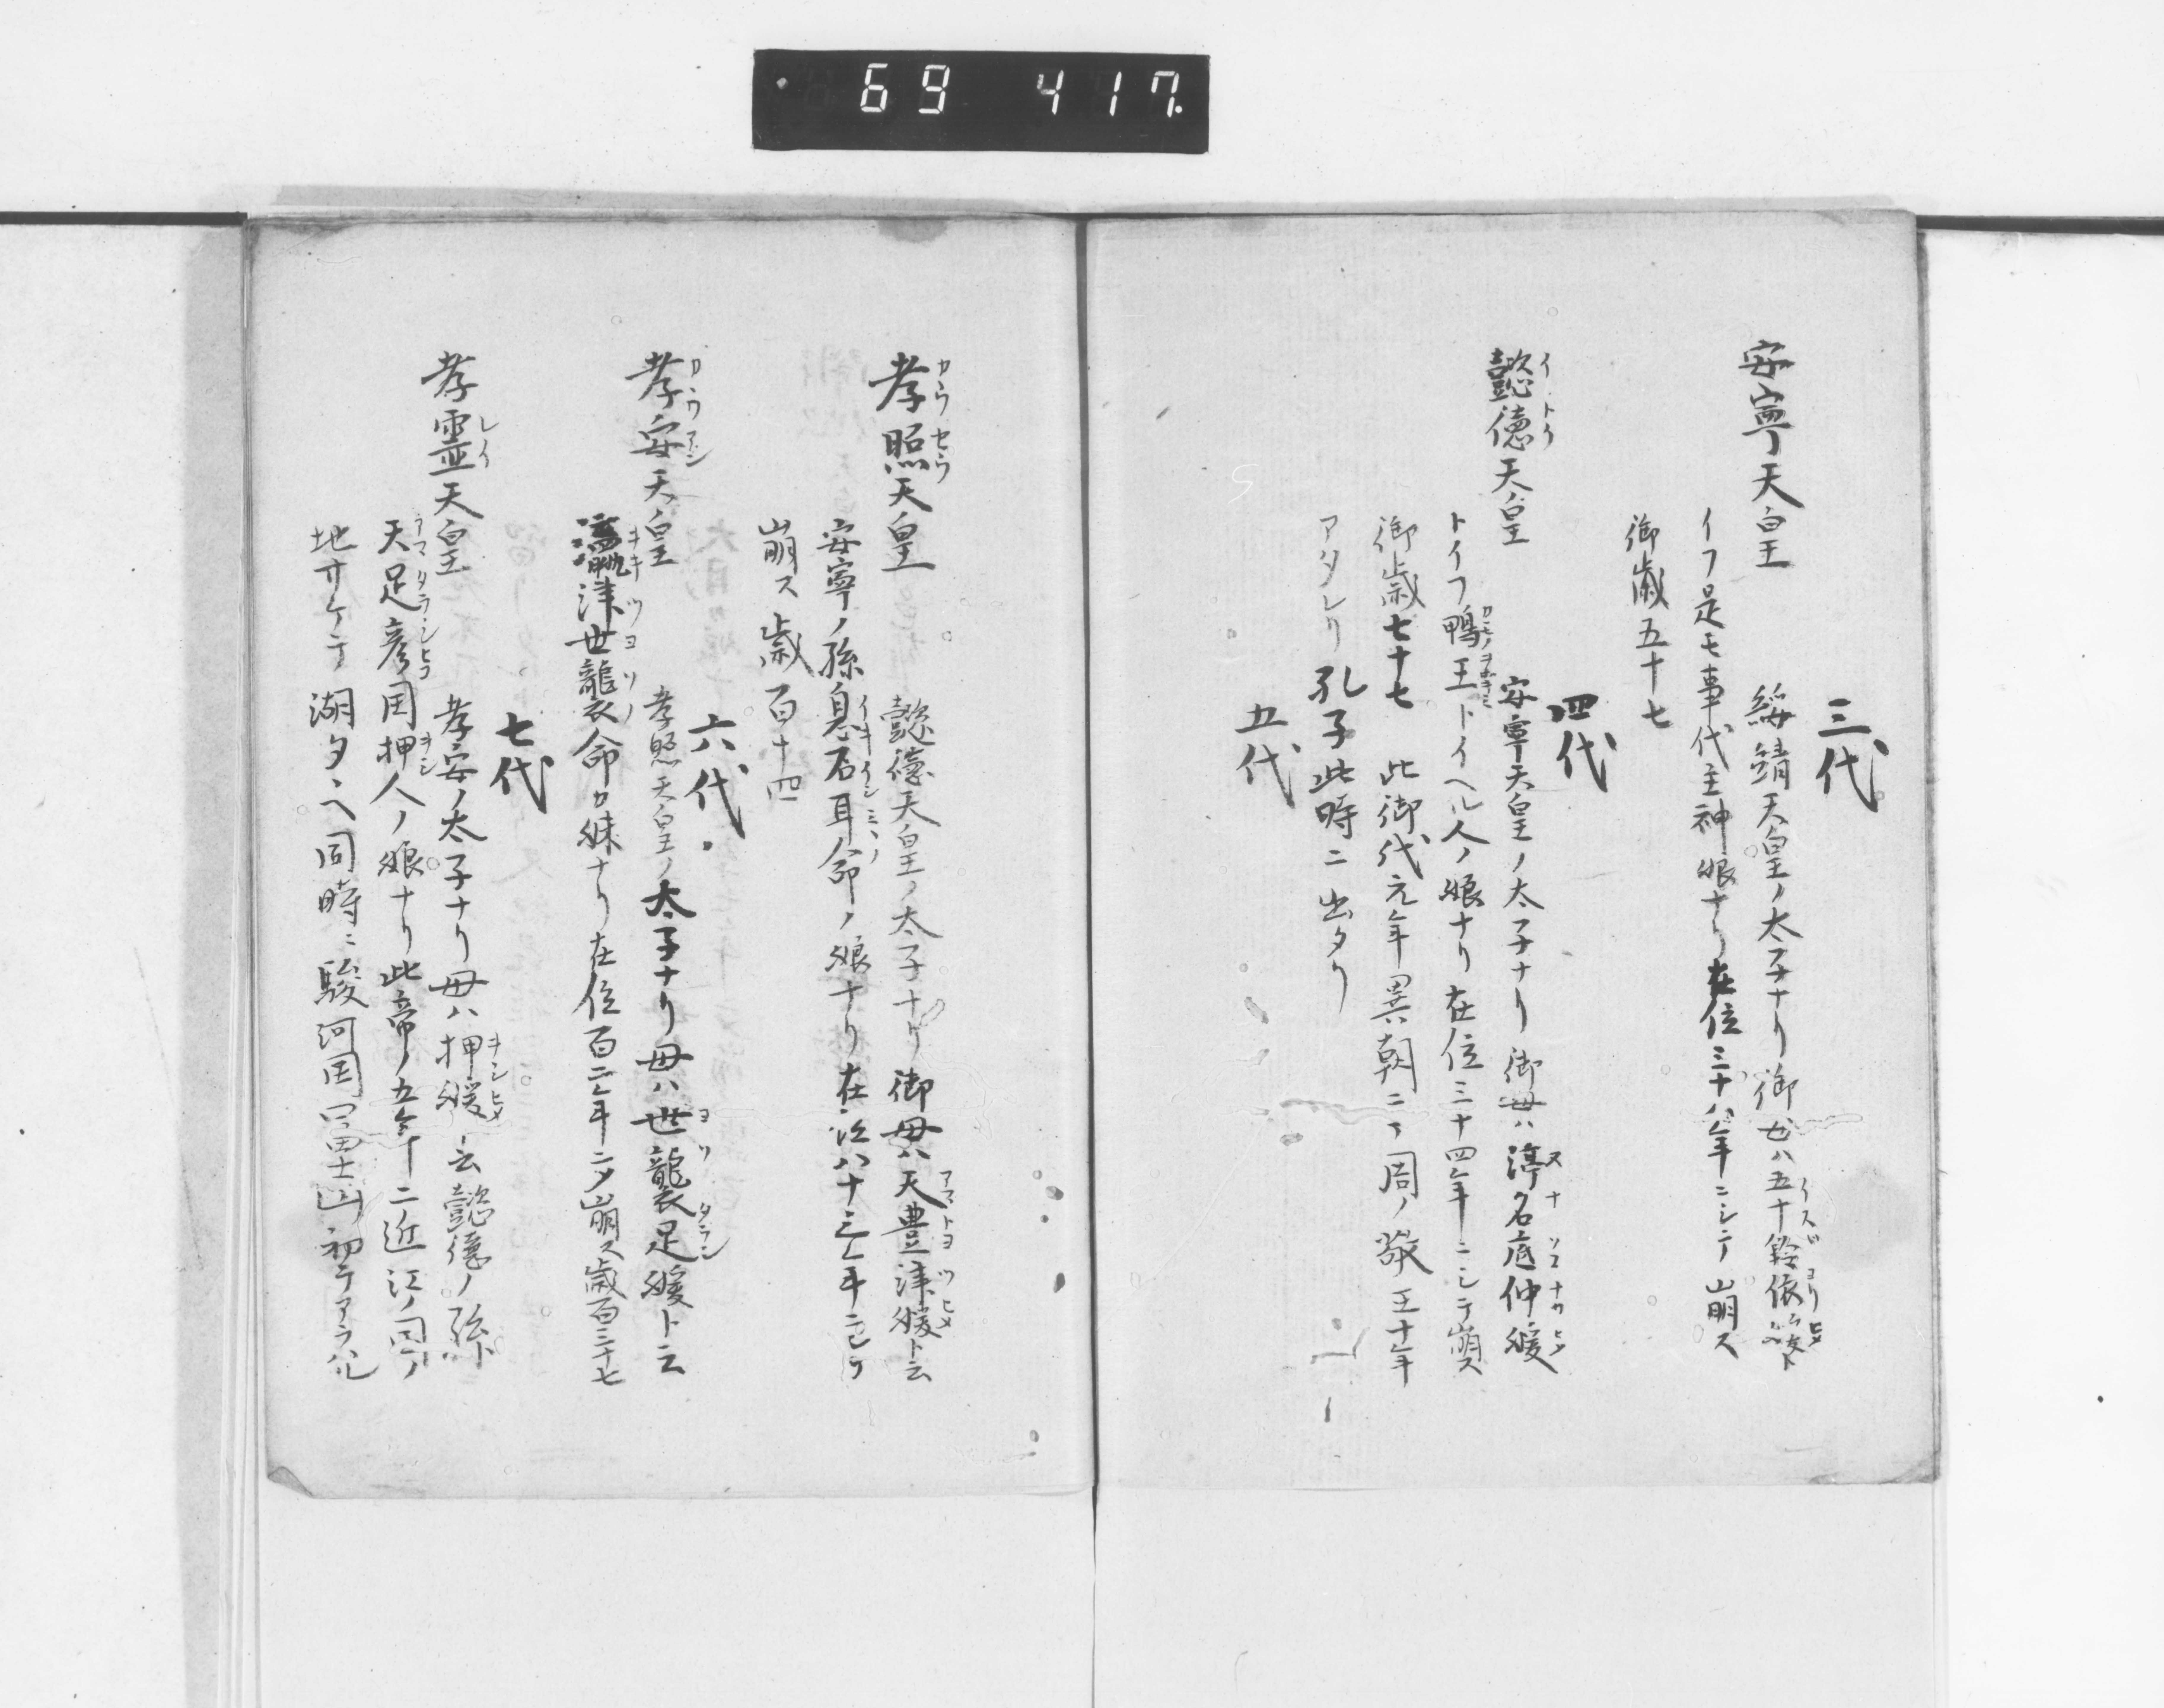 69 417.
三代
安寧天皇
綏靖天皇ノ太子ナリ御母ハ五十鈴依媛ト
イフ是モ事代主神娘ナリ在位三十八年ニシテ崩ス
御歳五十七
四代
懿徳天皇
安寧天皇ノ太子ナリ御母ハ渟名底仲媛
トイフ鴨王トイヘル人ノ娘ナリ在位三十四年ニシテ崩ス
御歳七十七 此御代元年異朝ニテ周ノ敬王十年
アタレリ孔子此時ニ出タリ
五代
孝照天皇
懿徳天皇ノ太子ナリ御母ハ天豊津媛ト云
安寧ノ孫息石耳命ノ娘ナリ在位八十三年ニシテ
崩ス歳百十四
六代
孝安天皇
孝照天皇ノ太子ナリ母ハ世襲足媛ト云
瀛津世襲命カ妹ナリ在位百二年ニメ崩ス歳百三十七
七代
孝霊天皇
孝安ノ太子ナリ母ハ押媛ト云懿徳ノ孫
天足彦国押人ノ娘ナリ此帝ノ五年ニ近江ノ国ノ
地サケテ湖タヽヘ同時ニ駿河国冨士山初テアラハル